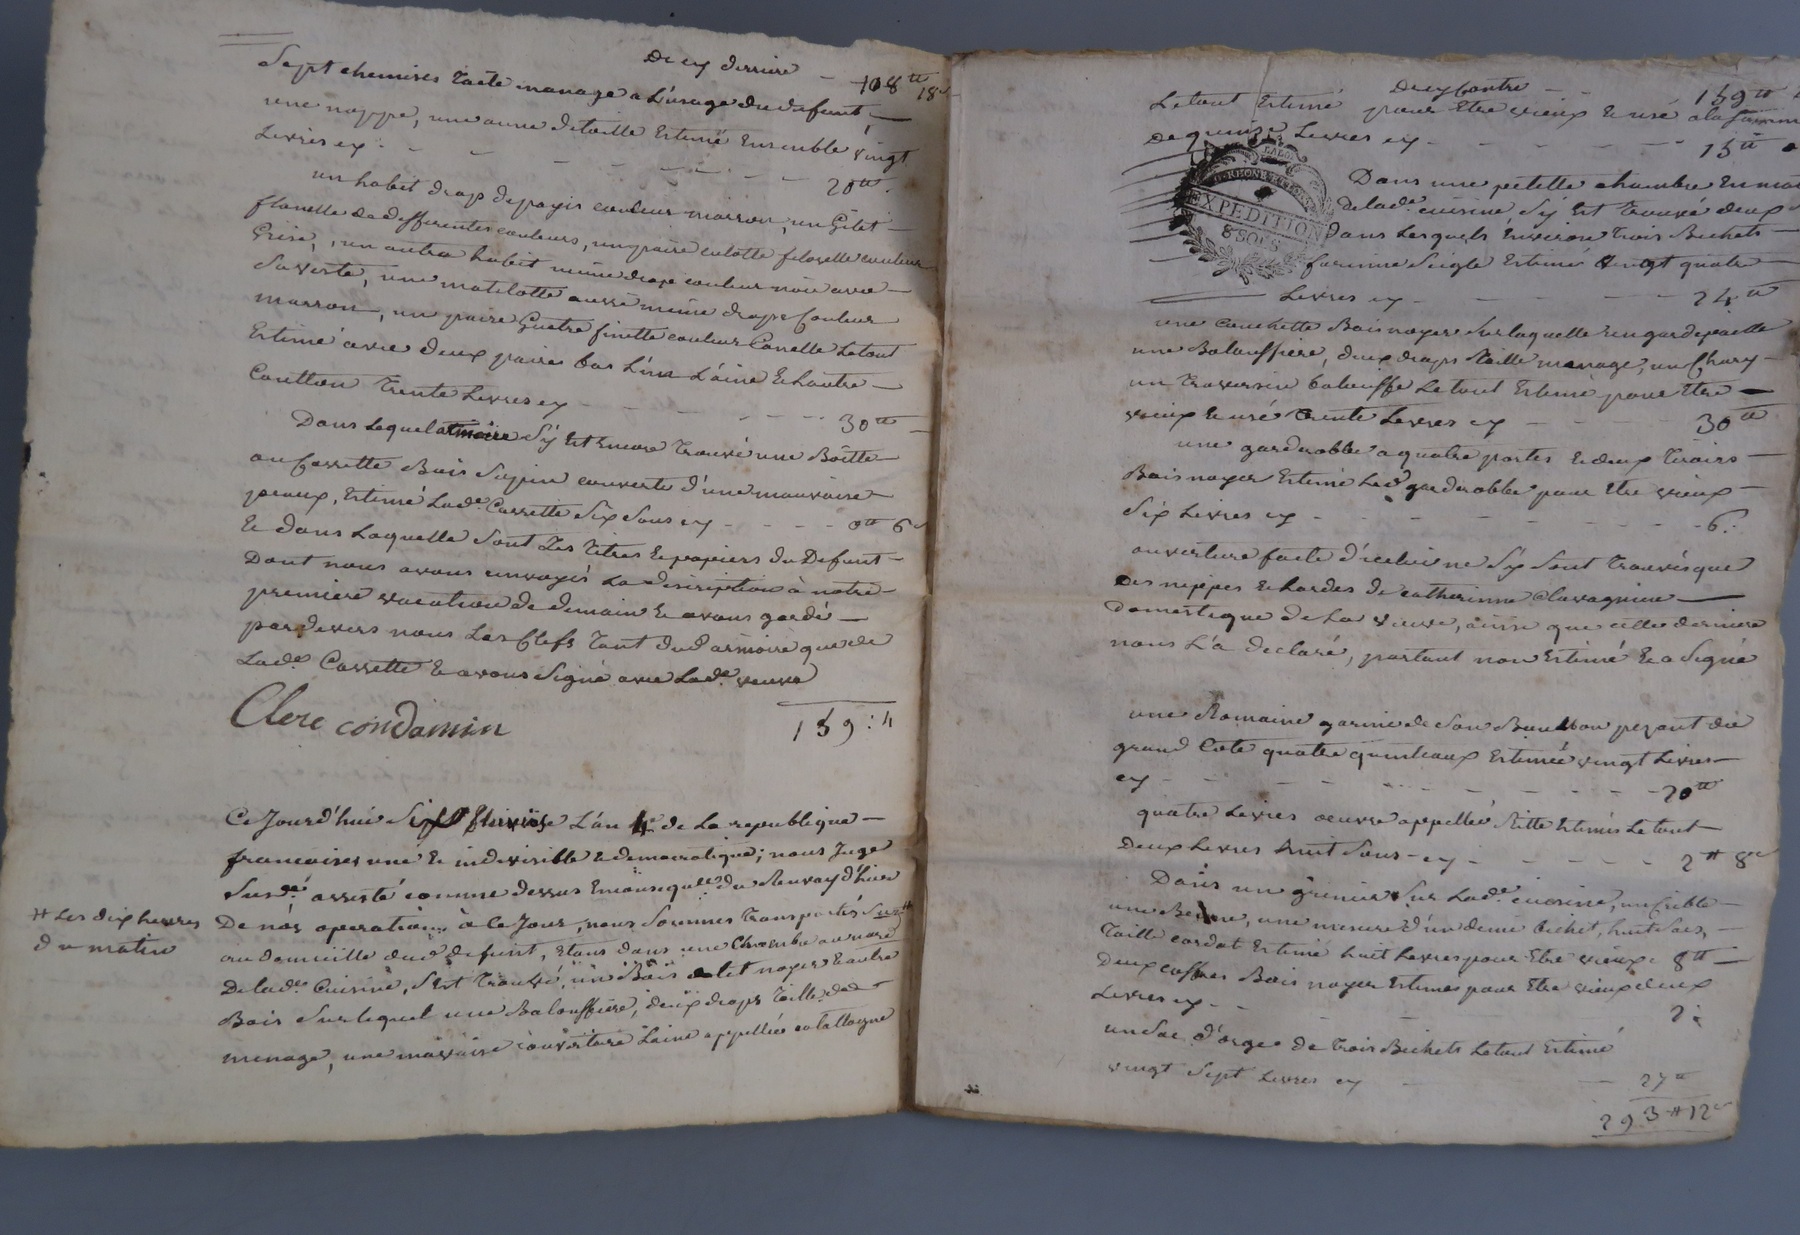 De cy derriere - 108 tt 18 s
Sept chemises toile manage a L'usage du defunt,
une nappe, une aune de toille Estimé Ensemble vingt
Livres cy - - - - - - 20 tt.
un habit drap de payis couleur marron, un Gilet
flanelle de differentes couleurs, un paire culotte filoselle couleur
Grise, un autre habit meme drap couleur noir avec
Sa veste, une matelotte aussi meme drap Couleur
marron, un paire Guetre finette couleur Canelle Le tout
Estimé avec deux paire bas L'un Laine & Lautre
Cautton Trente Livres cy - - - - - 30 tt
Dans Lequel armoire S'y Est Encore Trouvé une Boëtte
ou Cassette Bois Sapin couverte d'une mauvaise
peaux, Estimé Lade. Cassette Six Sous cy - - - 0 tt 6 s
Et dans Laquelle Sont Les Titres & papiers du Defunt
Dont nous avons renvoyés La description à notre
premiere vacation de demain & avons gardé
par devers nous Les Clefs Tant dud. armoire que de
Lade. Cassette & avons Signé avec Lade. veuve
Clerc condamin
159 : 4
Ce Jourd'hui Sept Pluviose L'an 4e de La republique
francaises une & indivisible & democratique; nous Juge
Susdé. assisté comme dessus En consequee. du Renvoy d'hier
De nos operations à ce Jour, nous Sommes Transportés Sur #
# Les dix heures
du matin
au domicille dud. defunt, Etans dans une Chambe au nord
De lade. Cuisine, S'est Trouvé, un Bois de lit noyer & autre
Bois Sur lequel une Balouffiere, deux draps Toille de
menage, une mauvaise couverture Laine appellée catallogne
De cy Contre - - 159 tt 4
Le tout Estimé pour Etre vieux & usé a la somme
De quinze Livres cy - - - - - - 15 tt
EXPEDITION
8 SOLS
Dans une petitte chambre En mat
De lade. cuisine, S'y Est Trouvé deux
dans Lesquels Environ Trois Bichets
farinne Seigle Estimé vingt quatre
Livres cy - - - - - 24 tt
une Couchette Bois noyer Sur laquelle un garde paille
une Balouffiere, deux draps Toille menage, un Chary
un Traversin balouffe Le tout Estimé pour Etre
vieux & usé Trente Livres cy - - - - 30 tt
une garderobbe a quatre portes & deux Tiroirs
Bois noyer Estimé Lad. garderobbe pour Etre vieux
Six Livres cy - - - - - - - 6 :
ouverture faite d'icelui ne S'y Sont Trouvés que
Des nippes & hardes de catherinne Clavagnier
Domestique de La veuve, ainsi que cette derniere
nous L'a declaré, partant non Estimé & a Signé
une Romaine garnie de Son Boulon pezant du
grand Coté quatre quinteaux Estimée vingt Livres
cy - - - - - - - - 20 tt
quatre Livres oeuvre appellée Ritte Estimés Le tout
Deux Livres huit Sous cy - - - - 2 tt 8 s
Dans un grenier Sur Lade. cuisine, un Crible
une Benne, une mesure d'un demi bichet, huit Sacs,
Toille cordat Estimé huit Livres pour Etre vieux 8 tt
Deux coffres Bois noyer Estimes pour Etre vieux deux
Livres cy - - - - 2 :
un Sac d'orge de Trois Bichets Le tout Estimé
vingt Sept Livres cy - - 27 tt
293 tt 12 s